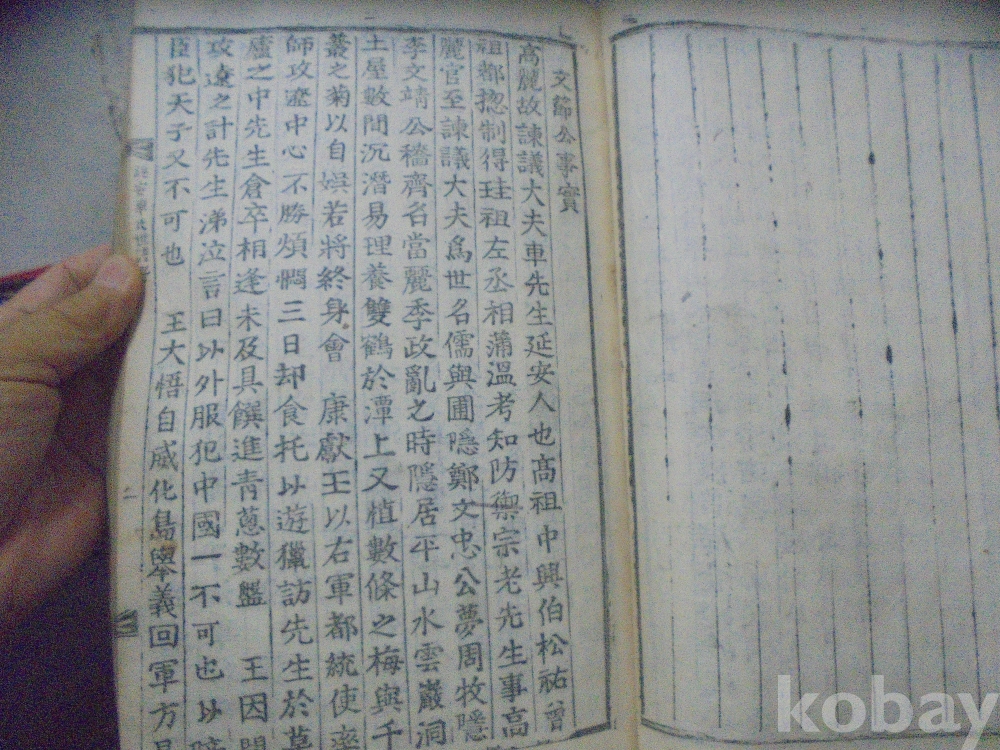 文節公事實
高麗故諫議大夫車先生延安人也高祖中興伯松祐曾
祖都揔制得珪祖左丞相蒲溫考知防禦宗老先生事高
麗官至諫議大夫爲世名儒與圃隱鄭文忠公夢周牧隱
李文靖公穡齊名當麗季政亂之時隱居平山水雲巖洞
土屋數間沉潛易理養雙鶴於潭上又植數條之梅與千
叢之菊以自娛若將終身會 康獻王以右軍都統使率
師攻遼中心不勝煩憫三日却食托以遊獵訪先生於草
廬之中先生倉卒相逢未及具饌進靑蔥數盤 王因問
攻遼之計先生涕泣言曰以外服犯中國一不可也以陪
臣犯天子又不可也 王大悟自威化島擧義回軍方
kobay